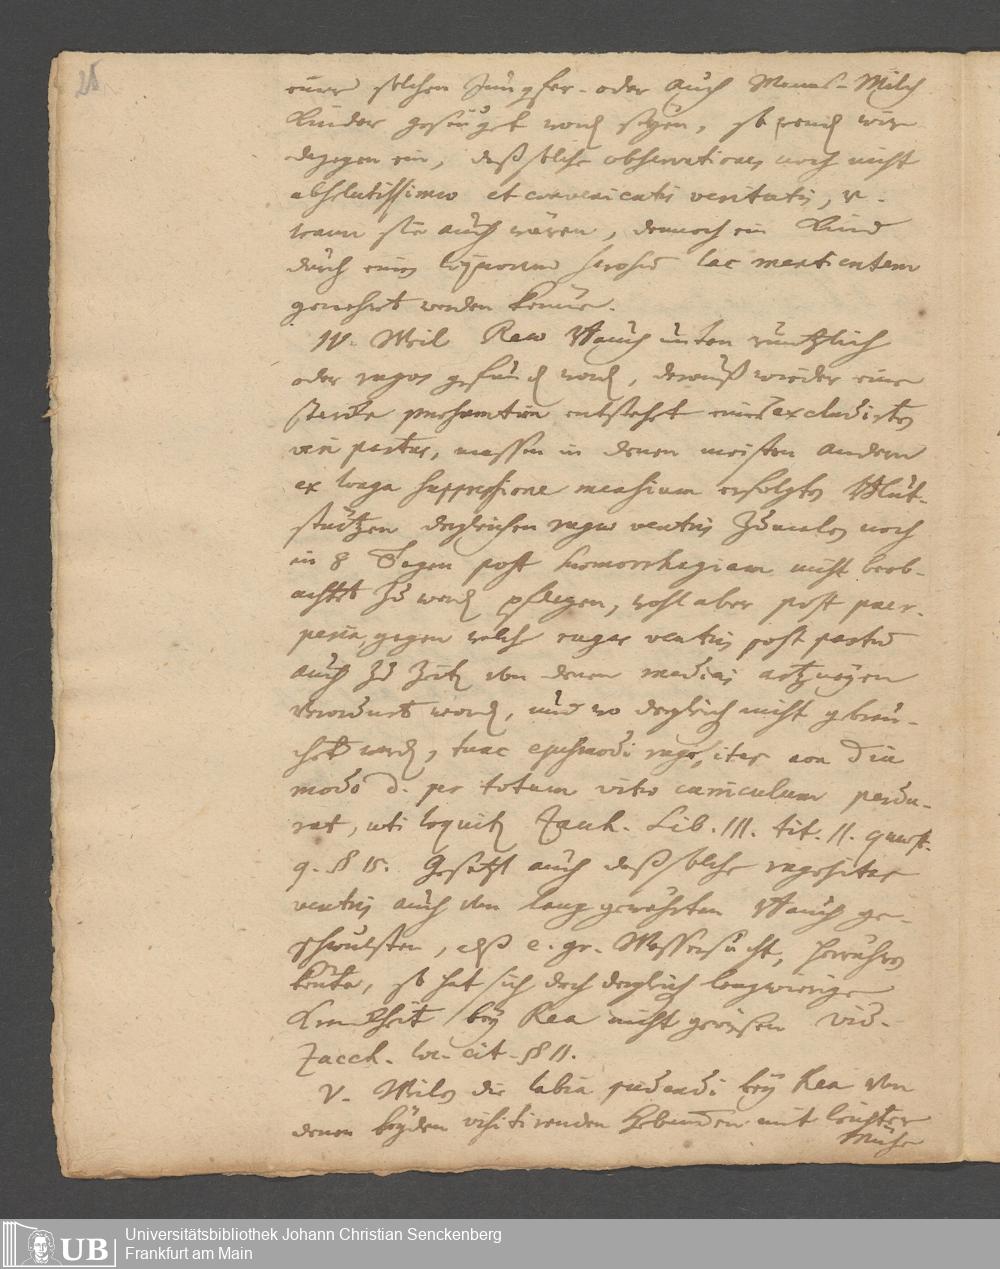 28
einer solchen Jungfer- oder auch Manns-Milch
Kinder gesäuget word seyen, so wend wir
dagegen ein, daß solche observationes noch nicht
absolutissimae et veritatis, u.
wann sie auch wären, dennoch ein Kind
durch eines serosum lac mentientem
genehret werden könne.
IV. Weil Reae Bauch unten runtzlich
oder rugos gefund word, daraus wieder eine
starcke praesumtion entstehet eines
partus, massen in denen meisten andern
ex longa suppressione mensium erfolgten Blut-
stürtzen dergleichen rugae ventris zumalen noch
in 8 Tagen post haemorrhagiam nicht beob-
achtet zu werd pflegen, wohl aber post puer-
peria, gegen welche rugas ventris post partum
auch zu Zeiten von denen medicis artzneyen
verordnet word, und wo dergleich nicht gebrau-
chet werd, tunc ejusmodi rugositas non diu
modo d. per totum vitae curriculum perdu-
rat, uti loquit Zach. Lib. III. tit. II. quaest.
9. § 15. Gesetzt auch daß solche rugositas
ventris auch von lang gewährten Bauch ge-
schwulsten, alß e. gr. Wassersucht, herrühren
könte, so hat sich doch dergleich langwierige
Kranckheit bey Rea nicht gewiesen vid.
Zacch. loc. cit. § 11.
V. Weilen die labia pudendi bey Rea von
denen beyden visitirenden Hebammen mit leichter
Mühe
Universitätsbibliothek Johann Christian Senckenberg
Frankfurt am Main
UB